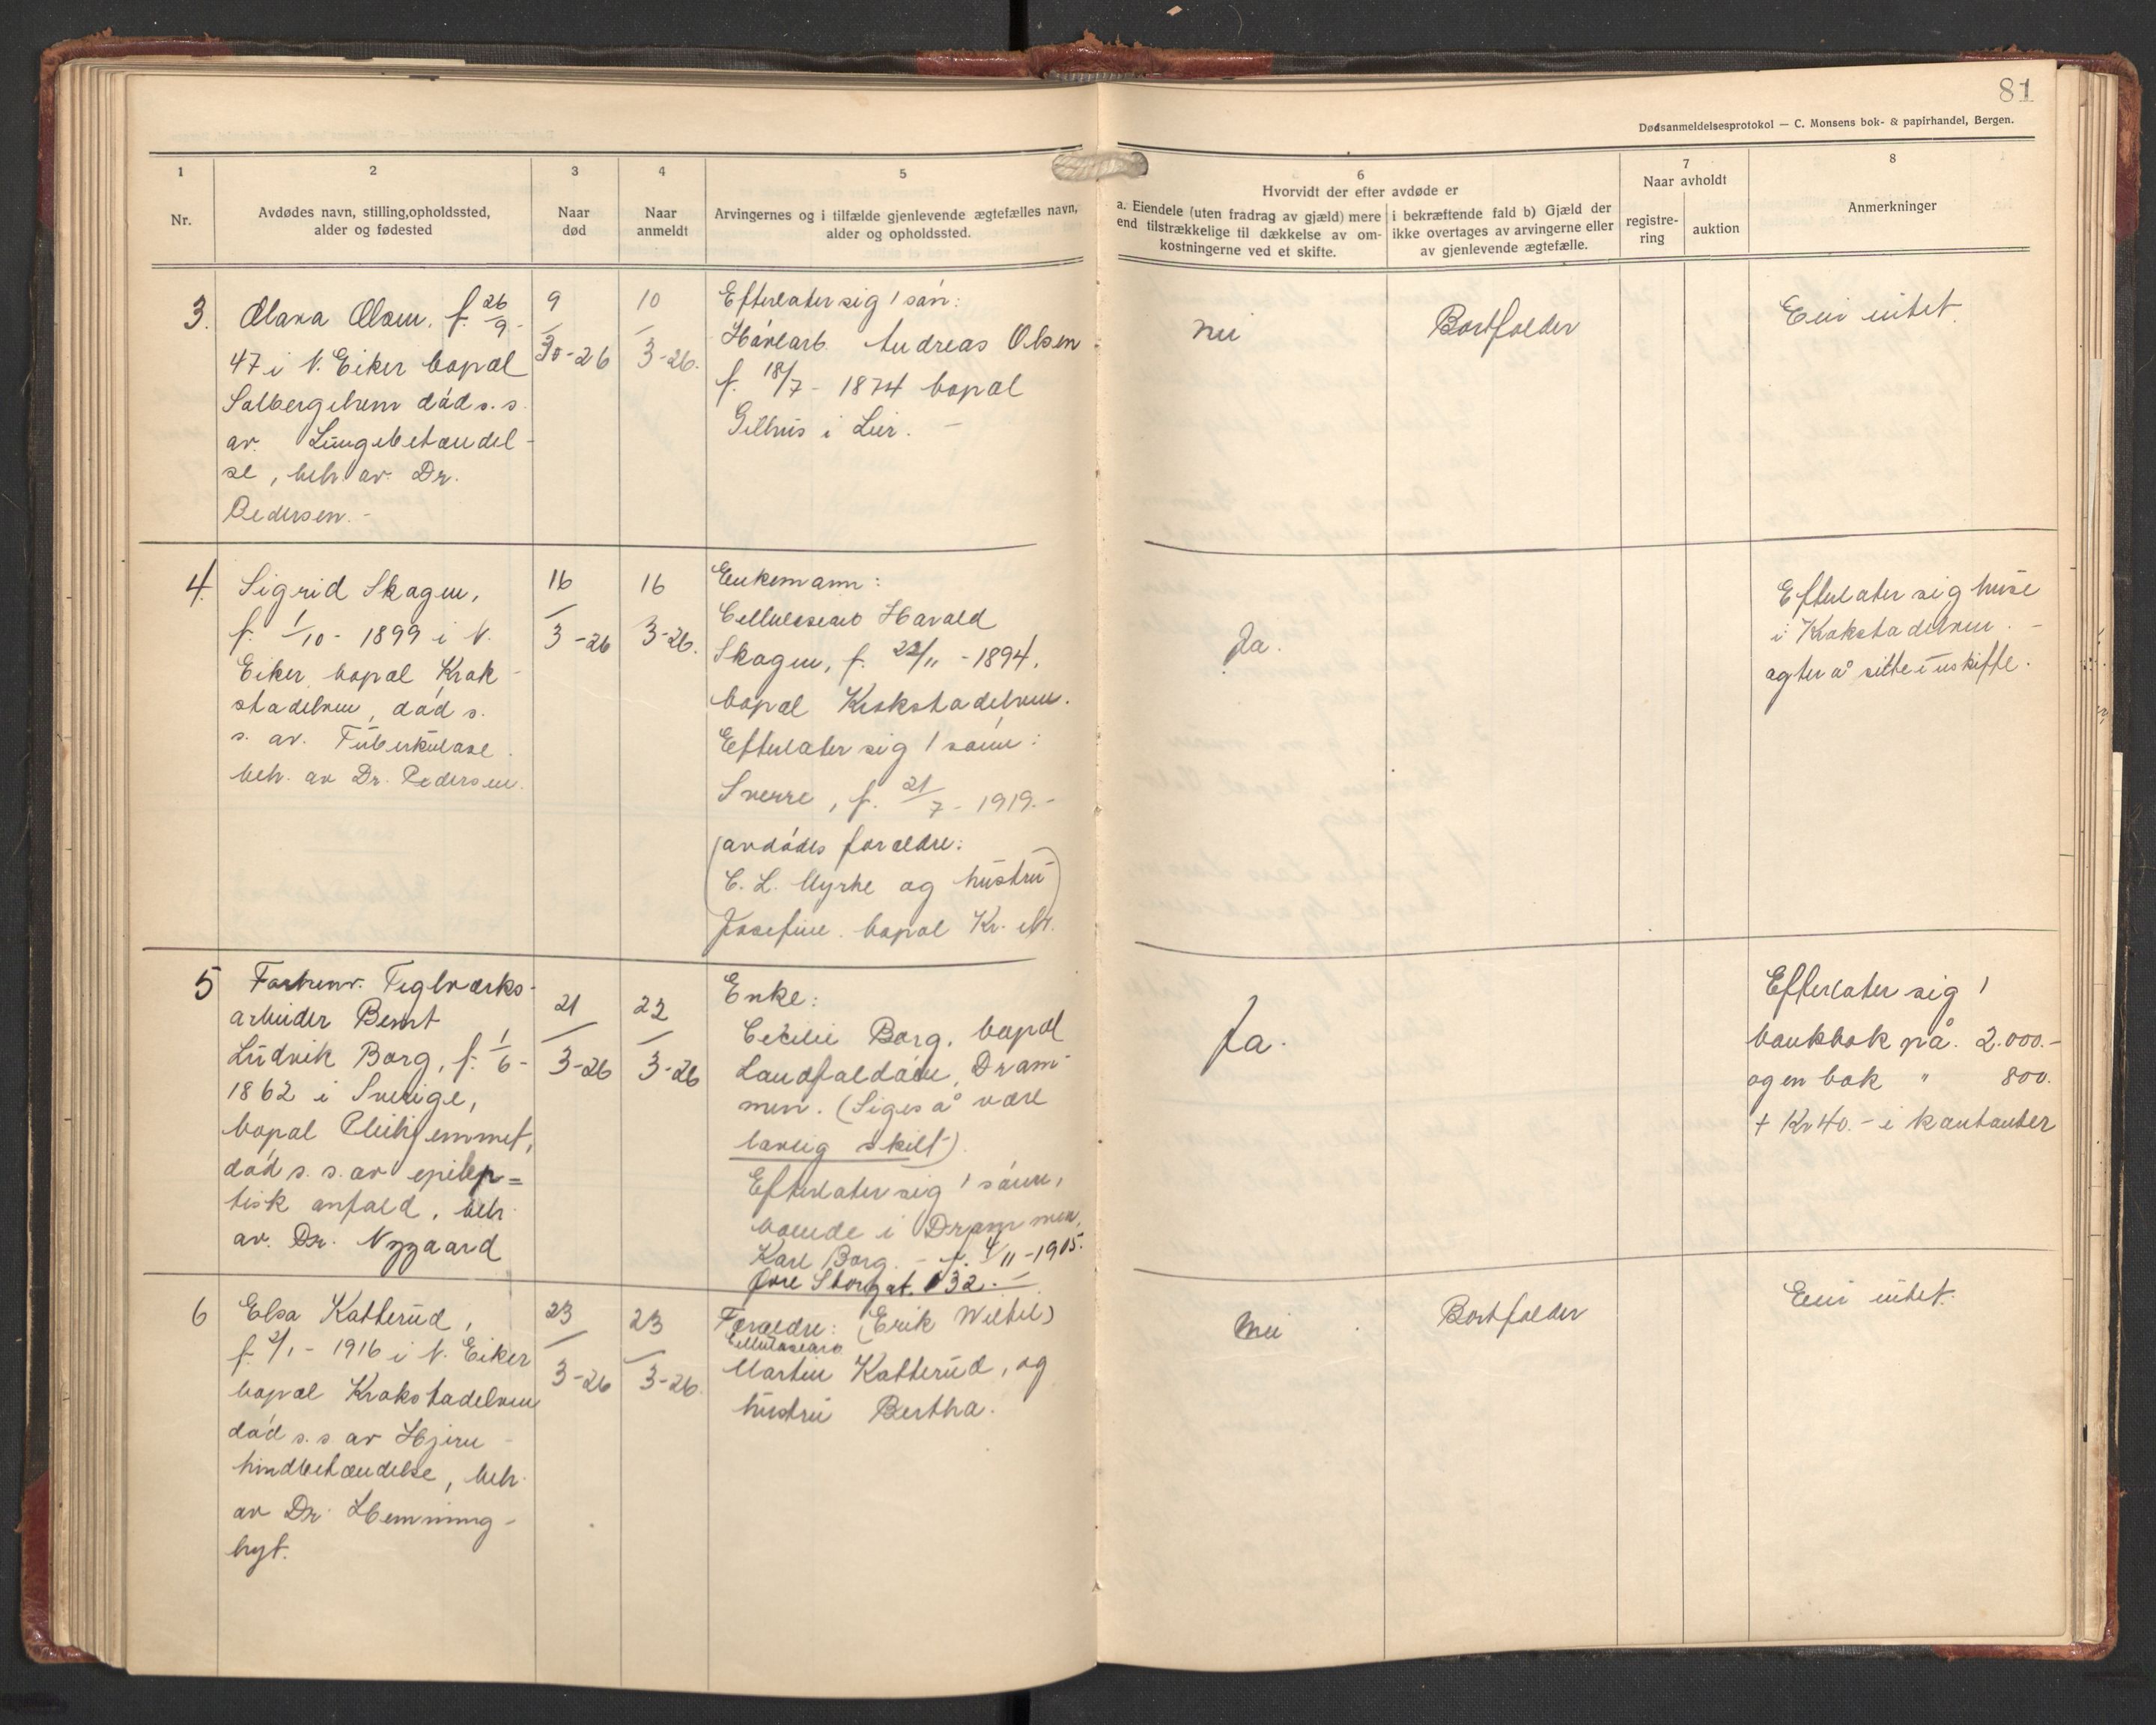 81
Dødsanmeldelsesprotokol — C. Monsens bok- & papirhandel, Bergen.
1
Nr.
2
Avdødes navn, stilling,opholdssted,
alder og fødested
3
Naar
død
4
Naar
anmeldt
5
Arvingernes og i tilfælde gjenlevende ægtefælles navn,
alder og opholdssted.
6
Hvorvidt der efter avdøde er
a. Eiendele (uten fradrag av gjæld) mere
end tilstrækkelige til dækkelse av om-
kostningerne ved et skifte.
i bekræftende fald b) Gjæld der
ikke overtages av arvingerne eller
av gjenlevende ægtefælle.
7
Naar avholdt
registre-
ring
auktion
8
Anmerkninger
3.
Olava Olsen, f. 26/9-
47 i N. Eiker bopæl
Solbergelven død s. s.
av Lungebetændel-
se, beh. av Dr.
Pedersen.-
9/3-26
10/3-26.
Efterlater sig 1 søn:
Høvlarb. Andreas Olsen
f. 18/7- 1874 bopæl
Gilhus i Lier. -
Nei
Bortfalder
Eier intet.
4.
Sigrid Skagen,
f. 1/10- 1899 i N.
Eiker, bopæl Krok-
stadelven, død s.
s. av. Tuberkulose.
beh. av Dr. Pedersen.
16/3-26
16/3-26.
Enkemann:
Cellulosearb Harald
Skagen, f. 22/11-1894,
bopæl Krokstadelven.
Efterlater sig 1 sønn:
Sverre, f. 21/7- 1919.-
(avdødes forældre:
C. L. Myrhe og hustru)
Josefine. bopæl Kr. elv.
Ja.
Efterlater sig huse
i Krokstadelven. -
agter å sitte i uskifte.
5
Forhenv. Teglverks-
arbeider Bernt
Ludvik Borg, f. 1/6-
1862 i Sverige,
bopæl Pleiehjemmet,
død s. s. av epilep=
tisk anfald, beh.
av. Dr. Nygaard
21/3-26
22/3-26
Enke:
Cecilie Borg, bopæl
Landfaldøen, Dram-
men. (Siges å være
lovlig skilt).
Efterlater sig 1 sønn,
boende i Drammen,
Karl Borg. - f. 4/11-1905.
Øvre Storgt. 132. -
Ja.
Efterlater sig 1
bankbok på. 2.000.-
og en bok " 800.
+ Kr 40.- i kontanter
6
Elsa Katterud,
f. 2/1- 1916 i N. Eiker
bopæl Krokstadelven
død s. s. av Hjerne-
hindebetændelse, beh.
av Dr. Hemming-
hyt.
23/3-26
23/3-26.
Forældre: (Erik Wilhel)
Cellulosearb.
Martin Katterud, og
hustru Bertha.
Nei
Bortfalder
Eier intet.